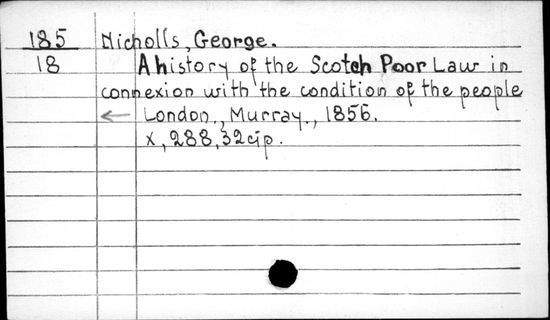 185 Nicholls, George.
18 A history of the Scotch Poor Law in
connexion with the condition of the people
← London., Murray., 1856.
x, 288, 32